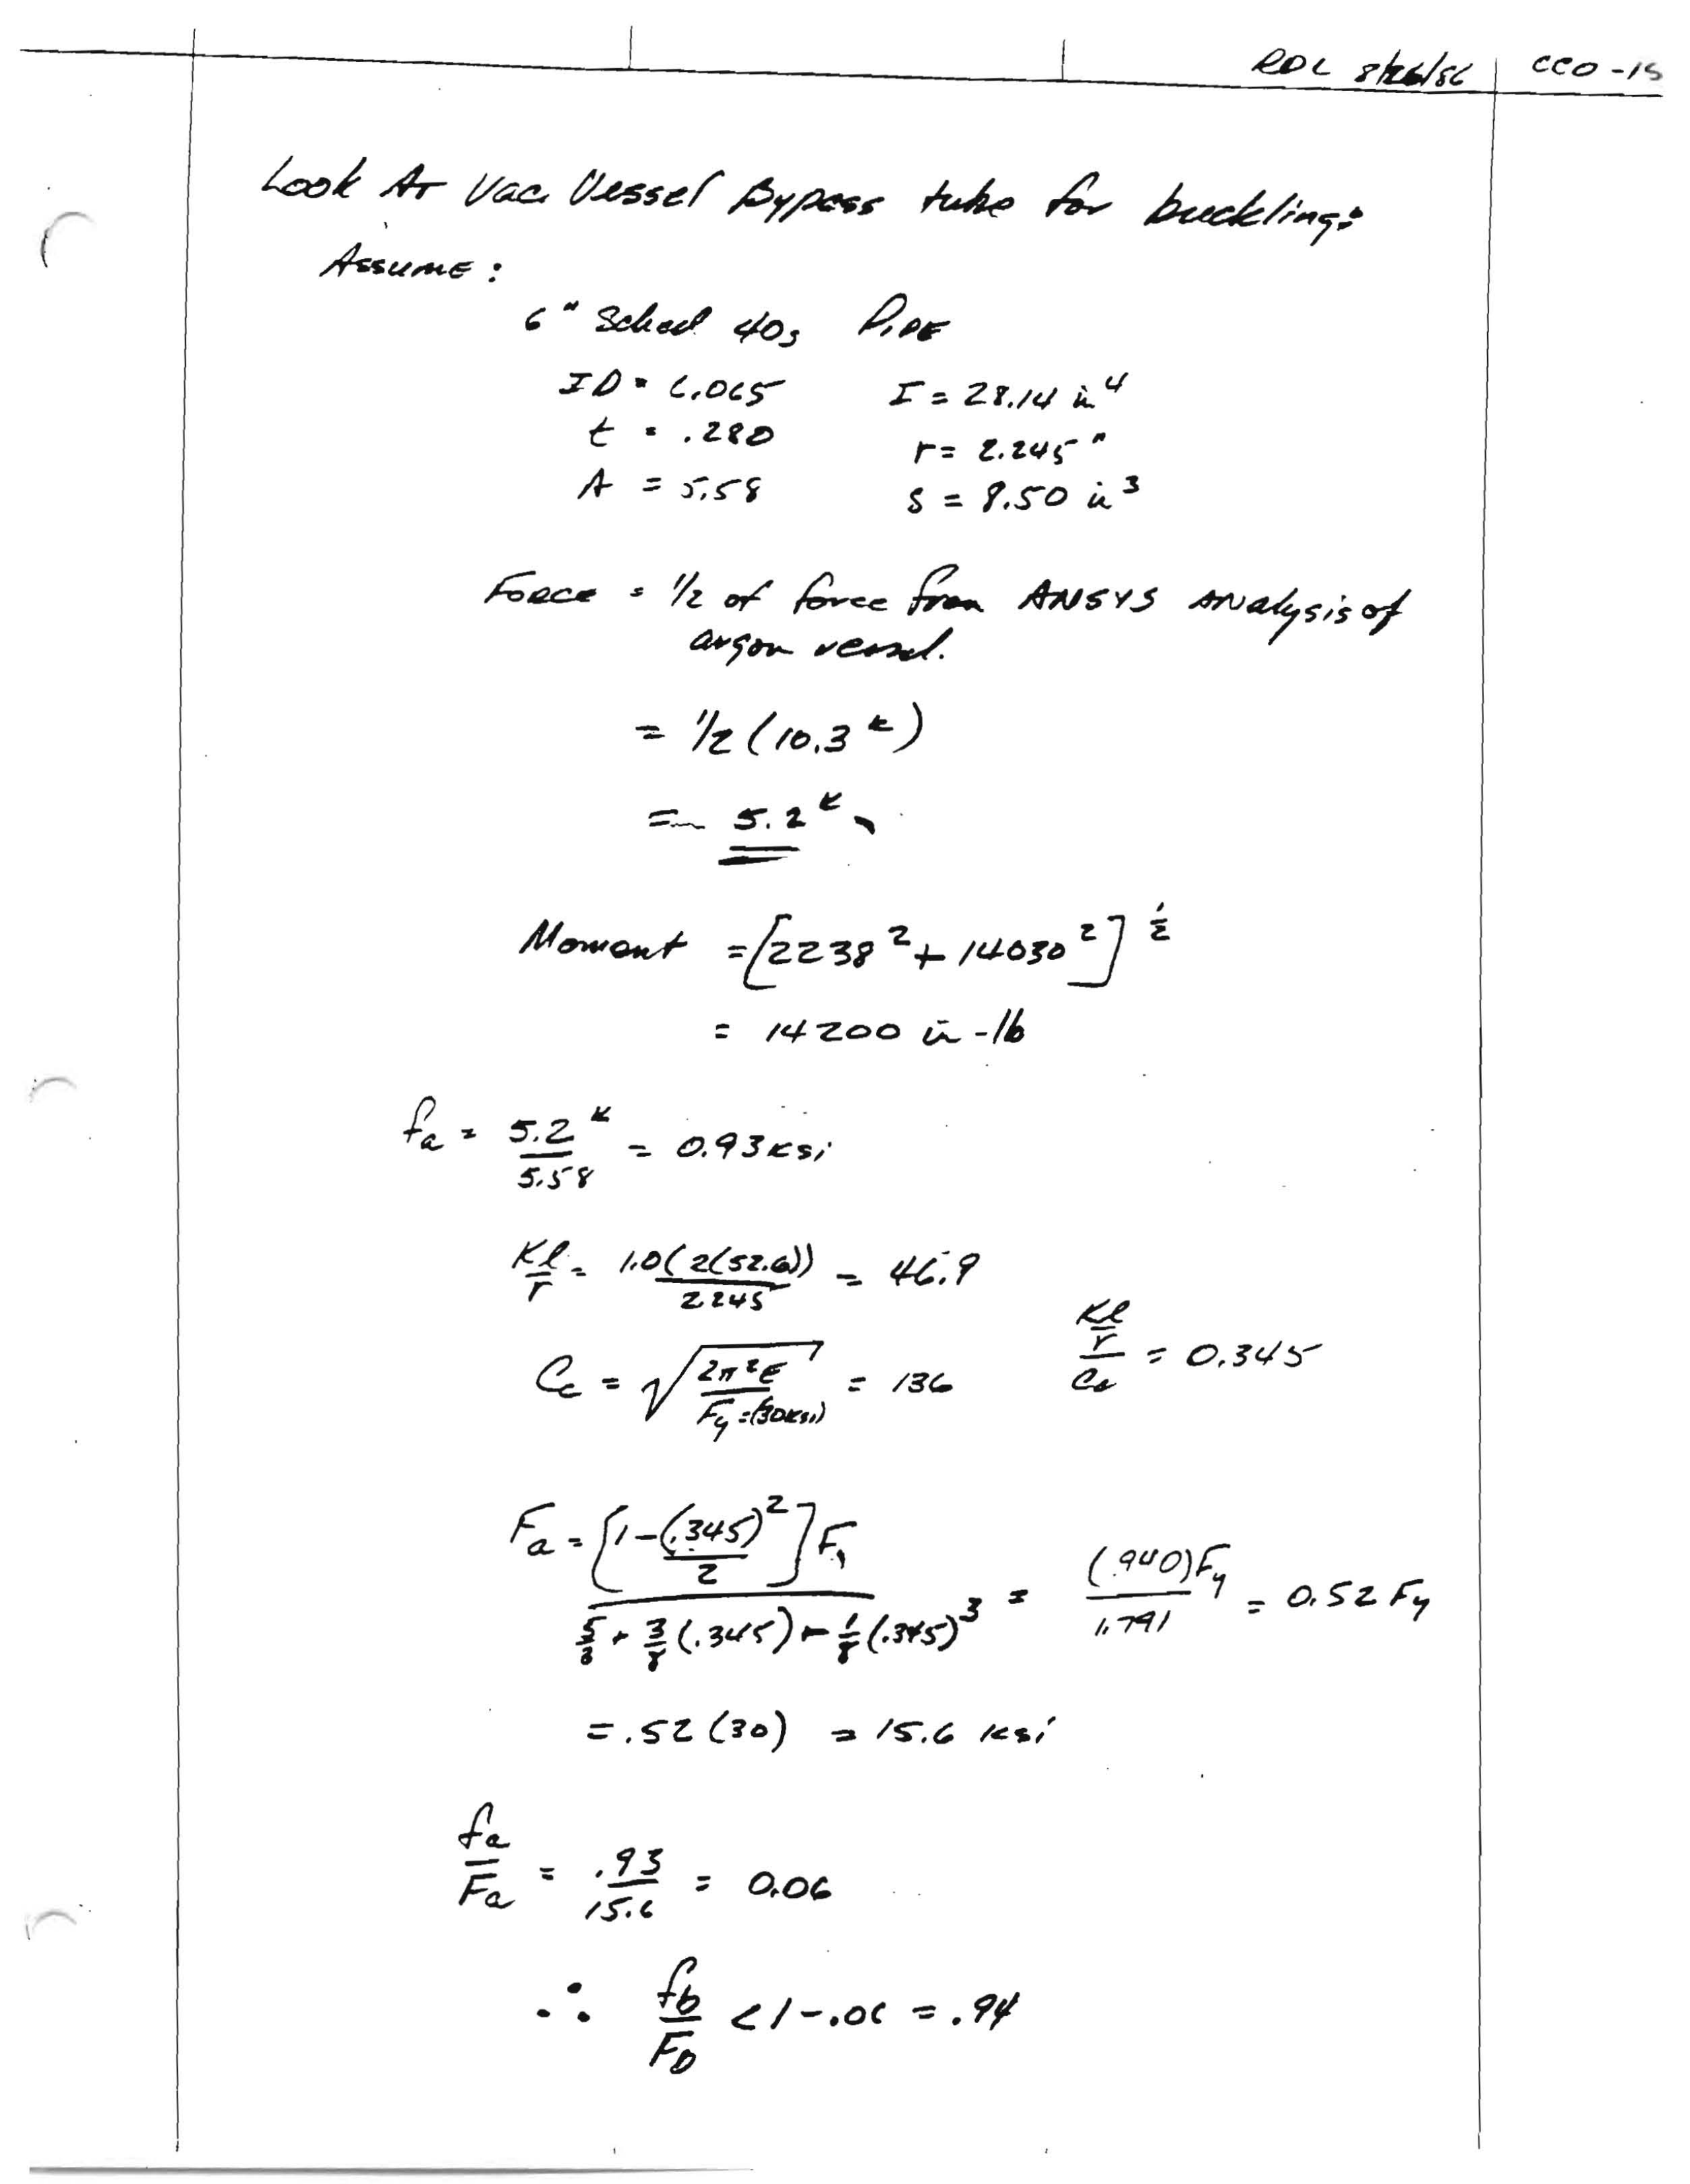 RDL 8/26/86 CCO-15
Look At Vac. Vessel Bypass tube for buckling:
Assume:
6" Sched 40s Pipe
ID = 6.065 I = 28.14 in⁴
t = .280 r = 2.245"
A = 5.58 S = 8.50 in³
Force = 1/2 of force from ANSYS Analysis of
argon vessel.
= 1/2 (10.3 k)
= 5.2 k
Moment = [2238² + 14030²]^1/2
= 14200 in-lb
fa = 5.2 k / 5.58 = 0.93 ksi
Kl/r = 1.0(2(52.6))/2.245 = 46.9
Cc = √(2π²E / Fy=(30ksi)) = 136 (Kl/r)/Cc = 0.345
Fa = [1 - (.345)²/2] Fy / (5/3 + 3/8 (.345) - 1/8 (.345)³) = (.940)Fy / 1.791 = 0.52 Fy
= .52 (30) = 15.6 ksi
fa/Fa = .93/15.6 = 0.06
∴ fb/Fb < 1 - .06 = .94